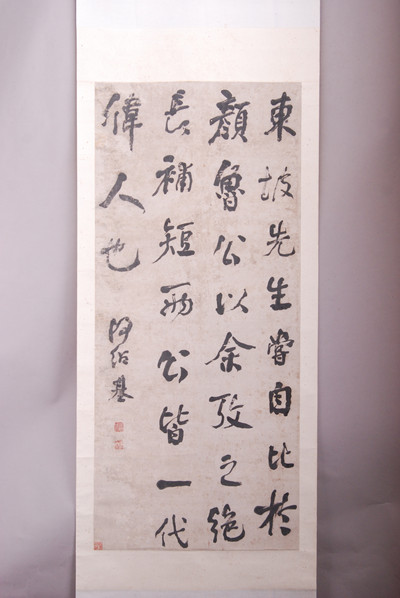 東坡先生嘗自比於
顏魯公以余攷之絕
長補短兩公皆一代
偉人也
何紹基